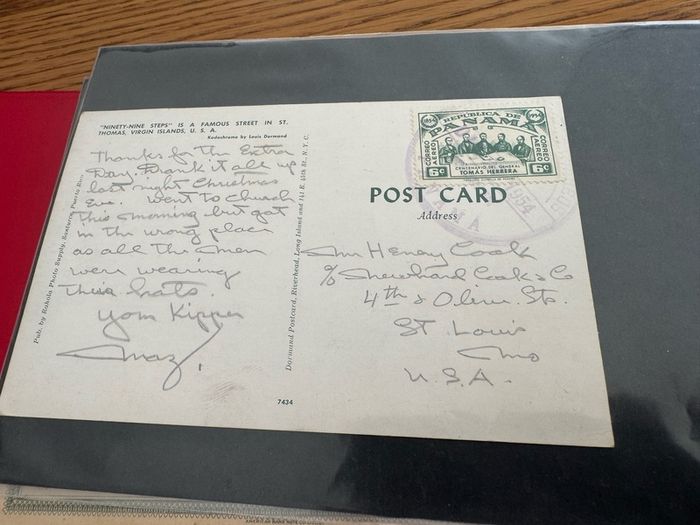 "NINETY-NINE STEPS" IS A FAMOUS STREET IN ST.
THOMAS, VIRGIN ISLANDS, U. S. A.
Kodachrome by Louis Dormand
Thanks for the Extra
Day. Drank it all up
last night Christmas
Eve. Went to church
this morning but got
in the wrong place
as all the men
were wearing
their hats.
Yom Kipper
Pub. by Rohola Photo Supply, Santurce, Puerto Rico
Dormand Postcard, Riverhead, Long Island and 141 E. 45th St. N. Y. C.
7434
1854 1954
REPUBLICA DE
PANAMA
CORREO
AEREO
CORREO
AEREO
CENTENARIO DEL GENERAL
TOMÁS HERRERA
6c 6c
1954
AMA
POST CARD
Address
Mr Henry Cook
4th & Olive Sts.
St Louis
Mo
U.S.A.
AMERICAN BANK NOTE CO